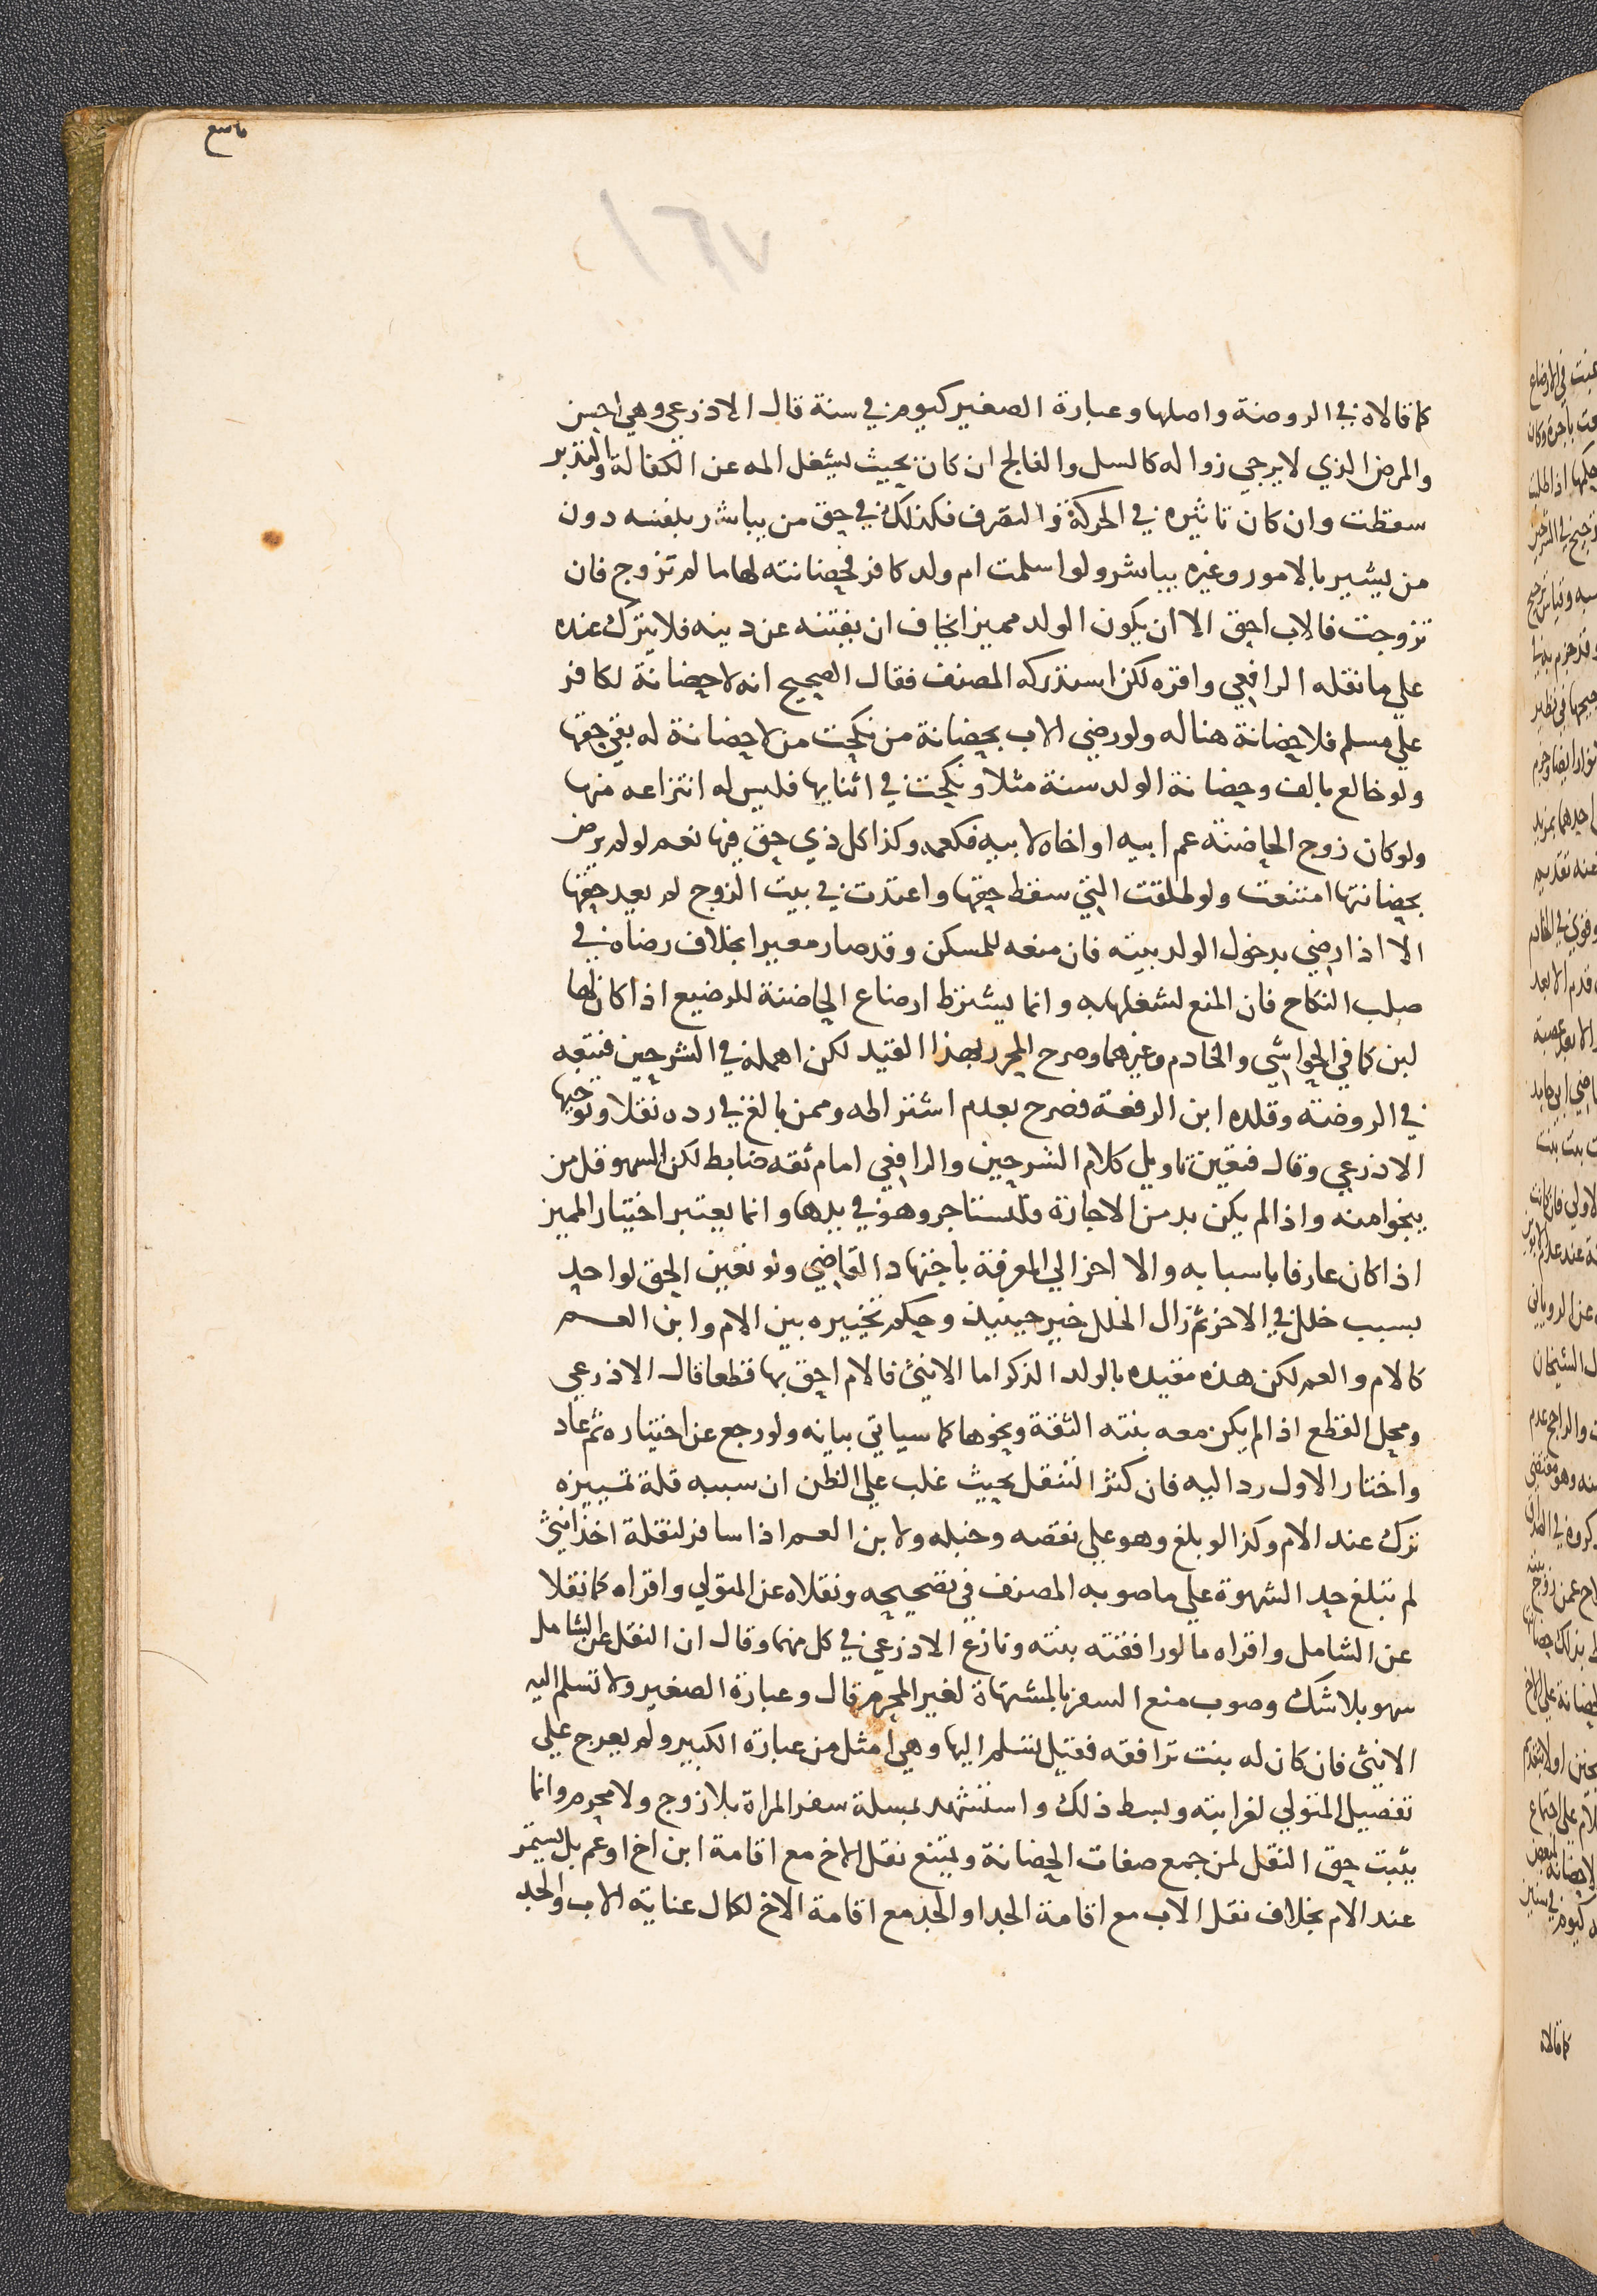 كما قالاه في الروضة واصلها وعبارة الصغير كيوم في سنة قال الاذرعي وهي احسن
والمرض الذي لا يرجي زواله كالسل والفالج ان كان بحيث يشغل المه عن الكفالة والتدبر
سقطت وان كان تاثيره في الحركة والتصرف فكذلك في حق من يباشر بلفسه دون
من يشير بالامور وغيره يباشر ولو اسلمت ام ولد كافر فحضانته لها ما لم تزوج فان
تزوجت فالاب احق الا ان يكون الولد مميز انخاف ان يفتنه عن دينه فلا يترك عنده
علي ما نقله الرافعي واقره لكن استدركه المصنف فقال الصحيح انه لا حضانة لكافر
علي مسلم فلا حضانة هنا له ولو رضي الاب بحضانة من نكحت من لا حضانة له بقي حقها
ولو خالع بالف وحضانة الولد سنة مثلا ونكحت في اثنايها فليس له انتزاعه منها
ولو كان زوج الحاضنة عم ابيه او اخاه لابيه فكعمه وكذا كل ذي حق فيها نعم لو لم يرض
بحضانتها امتنعت ولو طلقت التي سقط حقها واعتدت في بيت الزوج لم يعد حقها
الا اذا رضي بدخول الولد بيته فان منعه للمسكن وقد صار معيرا بخلاف رضاه في
صلب النكاح فان المنع لشغلها به وانما يشترط ارضاع الحاضنة للرضيع اذا كان لها
لبن كما في الحواشي والخادم وغيرهما وصرح المحرر بهذا القيد لكن اهمله في الشرحين فتبعه
في الروضة وقلده ابن الرفعة فصرح بعدم اشتراطه وممن بالغ في رده نقلا وتوجيها
الاذرعي وقال فتعين تاويل كلام الشرحين والرافعي امام ثقه ضابط لكن السهو قل من
ينجوا منه واذا لم يكن بد من الاجارة فلتستاجر وهو في يدها وانما يعتبر اختيار المميز
اذا كان عارفا باسبابه والا اخر الي المعرفة باجتهاد القاضي ولو تعين الحق لواحد
بسبب خلل في الاخر ثم زال الخلل خير حينيذ وحكم تخييره بين الام وابن العم
كالام والعم لكن هذه مقيده بالولد الذكر اما الانثي فالام احق بها قطعا قال الاذرعي
ومحل القطع اذا لم يكن معه بنته الثقة ونحوها كما سياتي بيانه ولو رجع عن اختياره ثم عاد
واختار الاول رد اليه فان كثر التنقل بحيث غلب علي الظن ان سببه قلة تمييزه
ترك عند الام وكذا لو بلغ وهو علي نقصه وخبله ولابن العم اذا سافر لنقلة اخذ انثي
لم تبلغ حد الشهوة علي ما صوبه المصنف في تصحيحه ونقلاه عن المتولي واقراه كما نقلا
عن الشامل واقراه ما لو رافقته بنته ونازع الاذرعي في كل منهما وقال ان النقل عن الشامل
سهو بلا شك وصوب منع السفر بالمشتهاة لغير المحرم قال وعبارة الصغير ولا تسلم اليه
الانثي فان كان له بنت ترافقه فقيل تسلم اليها وهي امثل من عبارة الكبير ولم يعرج علي
تفصيل المتولي لغرابته وبسط ذلك واستشهد بمسلة سفر المراة بلا زوج ولا محرم وانما
يثبت حق النقل لمن جمع صفات الحضانة ويمتنع نقل الاخ مع اقامة ابن اخ او عم بل يستمر
عند الام بخلاف نقل الاب مع اقامة الجد او الجد مع اقامة الاخ لكمال عناية الاب والجد
كما قالاه